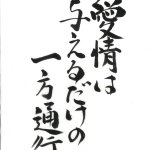 愛情は
与えるだけの
一方通行